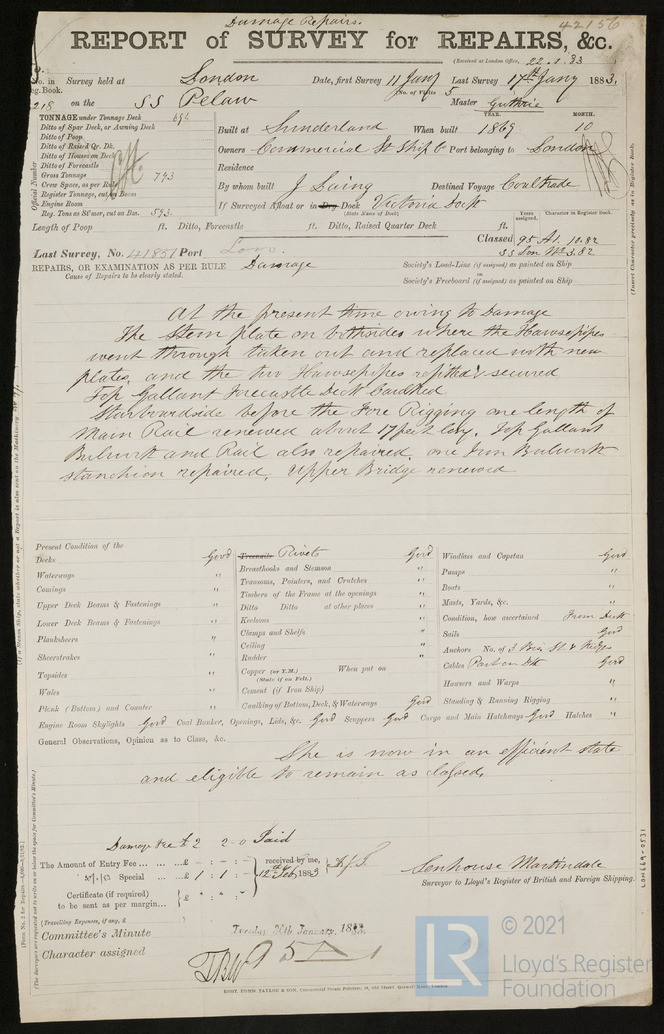 Damage Repairs.
42156
REPORT of SURVEY for REPAIRS, &c.
(Received at London Office, 22.1.83
No. in Survey held at London Date, first Survey 11 Jany Last Survey 17th Jany 1883.
Reg. Book. (No. of Visits 5
218 on the SS Pelaw Master Guthrie
TONNAGE under Tonnage Deck 694
Ditto of Spar Deck, or Awning Deck
Ditto of Poop
Ditto of Raised Qr. Dk.
Ditto of House on Deck
Ditto of Forecastle
Gross Tonnage 793
Crew Space, as per Rule
Register Tonnage, cut on Beam
Engine Room
Reg. Tons as St'mer, cut on Bm. 593.
Official Number
YEAR. MONTH.
Built at Sunderland When built 1869 10
Owners Commercial St Ship Co Port belonging to London
Residence
By whom built J Laing Destined Voyage Coaltrade
If Surveyed Afloat or in Dry Dock Victoria Dock
(State Name of Dock)
Length of Poop ft. Ditto, Forecastle ft. Ditto, Raised Quarter Deck ft.
Years assigned. Character in Register Book.
Classed 95 A1. 10.82
SS Lon No 3.82
Last Survey, No. 41851 Port Lon.
REPAIRS, OR EXAMINATION AS PER RULE Damage
Cause of Repairs to be clearly stated.
Society's Load-Line (if assigned) as painted on Ship
or
Society's Freeboard (if assigned) as painted on Ship
At the present time owing to Damage
The Stem plate on bothsides where the Hawsepipes
went through taken out and replaced with new
plates, and the two Hawsepipes refitted & secured
Top Gallant Forecastle Deck Caulked
Starboardside before the Fore Rigging one length of
Main Rail renewed about 17 feet long. Top Gallant
Bulwark and Rail also repaired. one Iron Bulwark
stanchion repaired. Upper Bridge renewed
Present Condition of the
Decks Good
Waterways "
Comings "
Upper Deck Beams & Fastenings "
Lower Deck Beams & Fastenings "
Planksheers "
Sheerstrakes "
Topsides "
Wales "
Plank (Bottom) and Counter "
Treenails Rivets Good
Breasthooks and Stemson "
Transoms, Pointers, and Crutches "
Timbers of the Frame at the openings "
Ditto Ditto at other places "
Keelsons "
Clamps and Shelfs "
Ceiling "
Rudder "
Copper (or Y.M.) When put on
(State if on Felt.)
Cement (if Iron Ship)
Caulking of Bottom, Deck, & Waterways Good
Windlass and Capstan Good
Pumps "
Boats "
Masts, Yards, &c. "
Condition, how ascertained From Deck
Sails Good
Anchors No. of 3 Brs, St. & Kedges
Cables Part on Dk Good
Hawsers and Warps "
Standing & Running Rigging "
Engine Room Skylights Good Coal Bunker, Openings, Lids, &c. Good Scuppers Good Cargo and Main Hatchways Good Hatches "
General Observations, Opinion as to Class, &c.
She is now in an efficient state
and eligible to remain as classed.
Damage Fee £ 2 2 - 0 Paid
The Amount of Entry Fee ... £ - : - : -
Special ... £ 1 : 1 : -
received by me,
12th Feb 1883
Certificate (if required)
to be sent as per margin...
(Travelling Expenses, if any, £
Senhouse Martindale
Surveyor to Lloyd's Register of British and Foreign Shipping.
Committee's Minute Tuesday 30th January, 1883.
Character assigned 95 A 1
LR
© 2021
Lloyd's Register
Foundation
LON669-0531